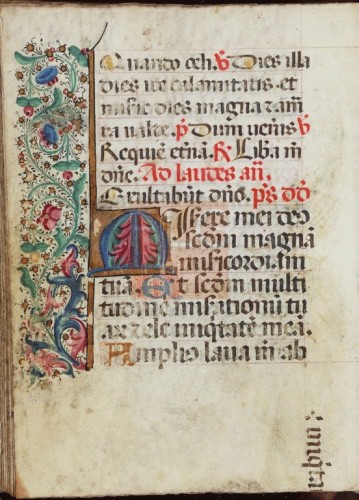 Quando celi. V Dies illa
dies ire calamitatis et
miserie dies magna et ama
ra valde. p Dum veneris V
Requiē etnā. R Libā m
dn̄e. Ad laudes añ.
Exultabūt dn̄o. ps dd
Miserere mei deus
scdm magnā
misericordi. am
tuā. Et scdm multi
tudinē miserationū tu
ar dele iniqtatē meā.
Amplio lava m ab
iniqta